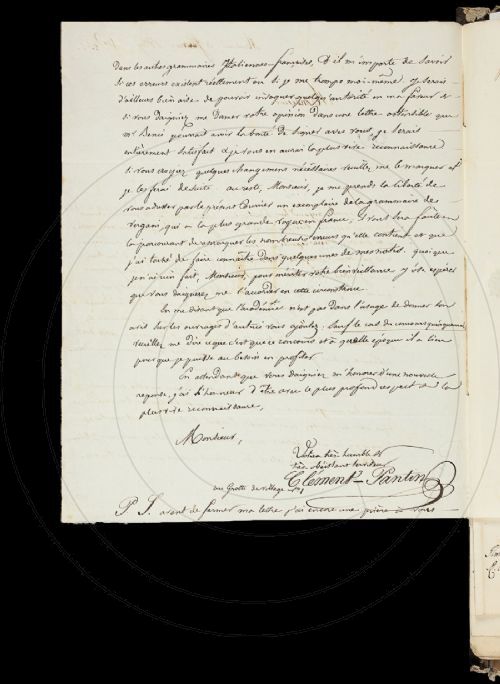 Dans les autres grammaires Italiennes-françaises, & il m'importe de savoir
si ces erreurs existent réellement ou si je me trompe moi-même. Je serais
d'ailleurs bien aise de pouvoir invoquer quelqu'autorité en ma faveur et
si vous daigniez me donner votre opinion dans une lettre ostensible que
mr. pourrait avoir la bonté de signer avec vous, je serais
entièrement satisfait & je vous en aurai la plus vive reconnaissance
Si vous croyez quelques changemens nécessaires veuillez me le marquer et
je les ferai de suite. au reste, Monsieur, je me prends la liberté de
vous adresser par le présent Courrier un exemplaire de la grammaire de
Vergani, qui a la plus grande vogue en france. Il vous sera facile en
la parcourant de remarquer les nombreuses erreurs qu'elle contient et que
j'ai tâché de faire connaître dans quelques unes de mes notes. quoique
je n'ai rien fait, Monsieur, pour mériter votre bienveillance j'ose espérer
que vous daignerez me l'accorder en cette circonstance.
En me disant que l'académie n'est pas dans l'usage de donner son
avis sur les ouvrages d'autrui vous ajoutez, sauf le cas du concours quinquennal
veuillez me dire ce que c'est que ce concours et à quelle époque il a lieu
pour que je puisse au besoin en profiter
En attendant que vous daigniez m'honorer d'une nouvelle
réponse, j'ai l'honneur d'être avec le plus profond respect et la
plus vive reconnaissance,
Monsieur,
Votre très humble et
très obéissant serviteur
Clément-Pantin
rue Grotte
P. S. avant de fermer ma lettre j'ai encore une prière à vous